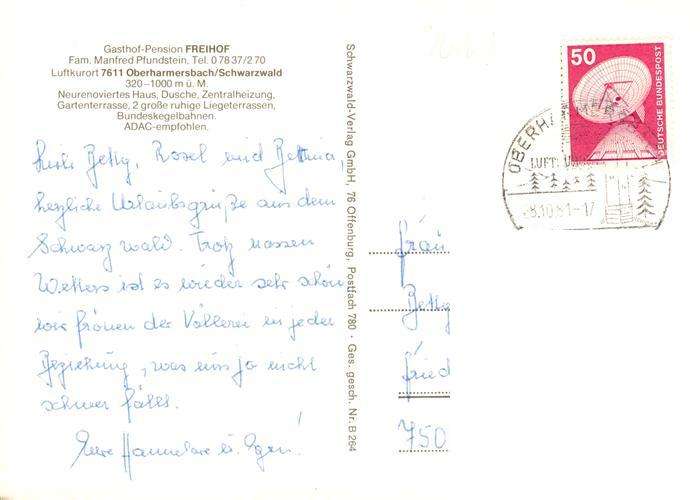 Gasthof-Pension FREIHOF
Fam. Manfred Pfundstein, Tel. 0 78 37/2 70
Luftkurort 7611 Oberharmersbach/Schwarzwald
320–1000 m ü. M.
Neurenoviertes Haus, Dusche, Zentralheizung,
Gartenterrasse, 2 große ruhige Liegeterrassen,
Bundeskegelbahnen.
ADAC-empfohlen.
Betty, Rosel und Bettina,
herzliche Urlaubsgrüße aus dem
Schwarzwald. Trotz nassen
Wetters ist es wieder sehr schön
wir frönen der Völlerei in jeder
Beziehung, was uns ja nicht
schwer fällt.
Eure Hannelore u. !
Schwarzwald-Verlag GmbH, 76 Offenburg, Postfach 780 · Ges. gesch. Nr. B 264
50
DEUTSCHE BUNDESPOST
OBERHARMERSBACH
LUFT
8.10.81-17
Frau
Betty
Fried
750